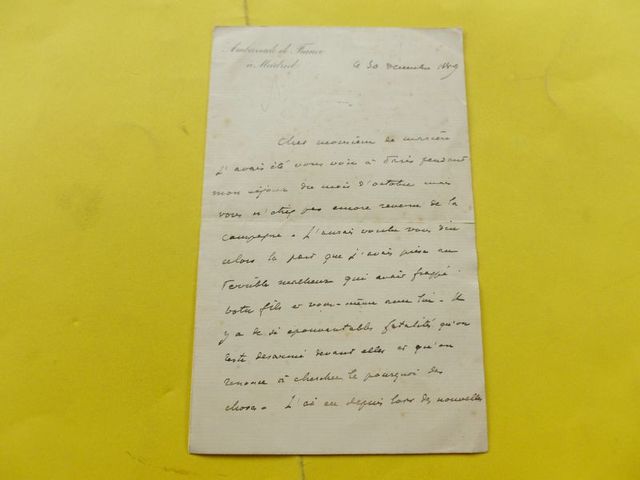 Ambassade de France
à Madrid
le 30 décembre
Cher monsieur de
J'avais été vous voir à Paris pendant
mon séjour du mois d'octobre mais
vous n'étiez pas encore revenu de la
campagne. J'aurais voulu vous dire
alors la part que j'avais prise au
terrible malheur qui avait frappé
votre fils et vous-même avec lui. Il
y a de si épouvantables fatalités qu'on
reste désarmé devant elles et qu'on
renonce à chercher le pourquoi des
choses. J'ai eu depuis lors des nouvelles